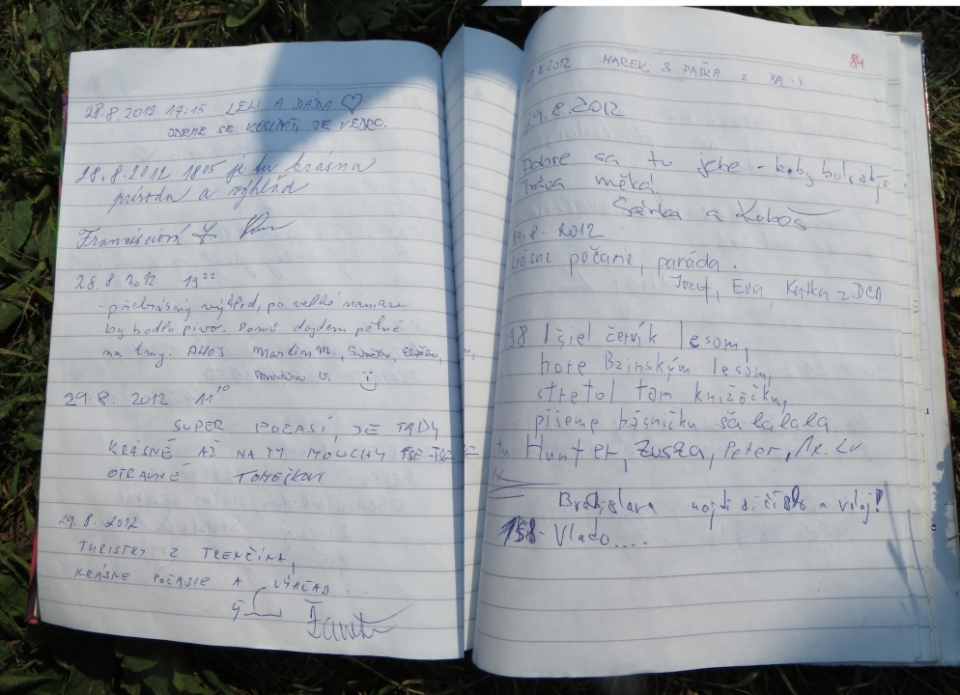 28.8.2012 17:15 LELI A DÁDA ♡
IDEME SE KOUPAT, JE VEDRO.
28.8.2012 1805 je tu krásna
príroda a výhlad
28.8 2012 19²²
- překrásný výhled, po velké namaze
by bodlo pivo. Domů dojdem pěkně
na tmy. AHOJ Martin M.,
Martin V.
29.8. 2012 11¹⁰
SUPER POČASÍ, JE TADY
KRÁSNĚ AŽ NA TY MOUCHY TSE-TSE
OTRAVNÉ TOMEŠKOVI
29.8.2012
TURISTKY Z TRENČÍNA,
KRÁSNE POČASIE A VÝHĽAD...
84
2012 MAREK & DAŠKA z BA :)
29.8.2012
Dobre sa tu jebe - keby bola
tráva měká.
Šárka a Luboš
8. 2012
krásne počasie, paráda.
Jozef, Eva, Katka z DCA
Išiel červík lesom,
hore Bzinským lesom,
stretol tam knižôčku,
píšeme básničku šalalala
Hunter, Zuska, Peter,
Bratislava najdi si číslo a volaj!
158 - Vlado....